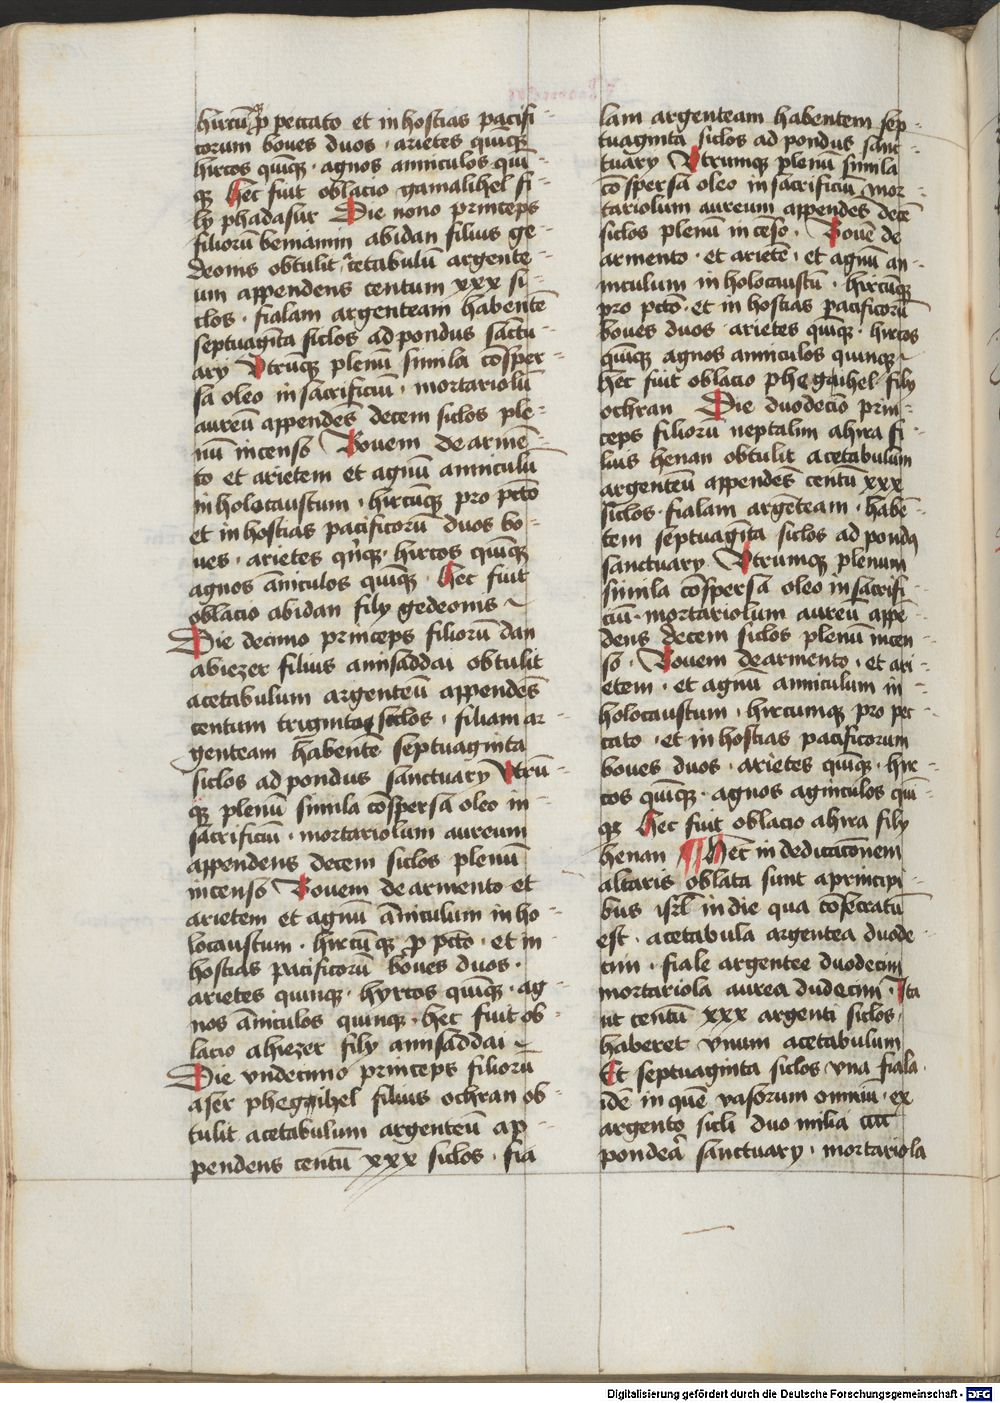 hircū ꝓ peccato et in hostias pacifi-
corum boues duos · arietes quīqꝫ
hircos quīqꝫ · agnos anniculos quī-
qꝫ Hec fuit oblacio gamalihel fi-
ly phadasur Die nono princeps
filiorū beniamin abidan filius ge-
deonis obtulit acetabulū argente-
um appendens centum xxx si-
clos · fialam argenteam habentē
septuagīta siclos ad pondus sāctu-
ary Vtrūqꝫ plenū simila cōsper-
sa oleo in sacrificiū · mortariolū
aureū appendēs decem siclos ple-
nū incenso Bouem de armē-
to et arietem et agnū anniculū
in holocaustum · hircūqꝫ pro pctō
et in hostias pacificorū duos bo-
ues · arietes qnqꝫ · hircos quīqꝫ
agnos āniculos quīqꝫ · Hec fuit
oblacio abidan fily gedeonis ~
Die decimo princeps filiorū dan
abiezer filius amisaddai obtulit
acetabulum argenteū appendēs
centum triginta siclos · filiam ar-
genteam habentē septuaginta
siclos ad pondus sanctuary Vtrū-
qꝫ plenū simila cōspersa oleo in
sacrificiū · mortariolum aureum
appendens decem siclos plenū
incenso Bouem de armento et
arietem et agnū āniculum in ho-
locaustum · hircūqꝫ ꝓ pctō · et in
hostias pacificorū boues duos ·
arietes quinqꝫ · hyrcos quīqꝫ · ag-
nos āniculos quinqꝫ · hec fuit ob-
lacio ahiezer fily amisaddai ~
Die vndecimo princeps filiorū
aser phegaihel filius ochran ob-
tulit acetabulum argenteū ap-
pendens centū xxx siclos · fia
lam argenteam habentem sep-
tuaginta siclos ad pondus sanc-
tuary Vtrumqꝫ plenū simila
cōspersa oleo in sacrificiū mor-
tariolum aureum appendēs decē
siclos plenū incēso · Bouē de
armento · et arietē · et agnū an-
niculum in holocaustū · hircūqꝫ
pro pctō · et in hostias pacificorū
boues duos · arietes quīqꝫ · hircos
quīqꝫ agnos anniculos quinqꝫ ~
Hec fuit oblacio phegaihel fily
ochran Die duodecīo prin-
ceps filiorū neptalim ahira fi-
luis henan obtulit acetabulum
argenteū appendēs centū xxx
siclos · fialam argēteam · habē-
tem septuagīta siclos ad pondꝰ
sanctuary Vtrumqꝫ plenum
simila cōspersa oleo in sacrifi-
ciū · mortariolum aureū appē-
dens decem siclos plenū incen-
so · Bouem de armento · et ari-
etem · et agnū anniculum in
holocaustum · hircumqꝫ pro pec-
cato · et in hostias pacificorum
boues duos · arietes quīqꝫ · hir-
cos quīqꝫ · agnos aginculos quī-
qꝫ Hec fuit oblacio ahira fily
henan ¶ Hec in dedicacōnem
altaris oblata sunt a principi-
bus isrl̄ in die qua cōsecratū
est · acetabula argentea duode-
cim · fiale argentee duodecim
mortariola aurea dudecim · Ita
ut centū xxx argenti siclos
haberet vnum acetabulum
Et septuaginta siclos vna fiala ·
ide in quē vasorum omniū · ex
argento sicli duo milia cccc
pondeꝛ sanctuary · mortariola
Digitalisierung gefördert durch die Deutsche Forschungsgemeinschaft - DFG